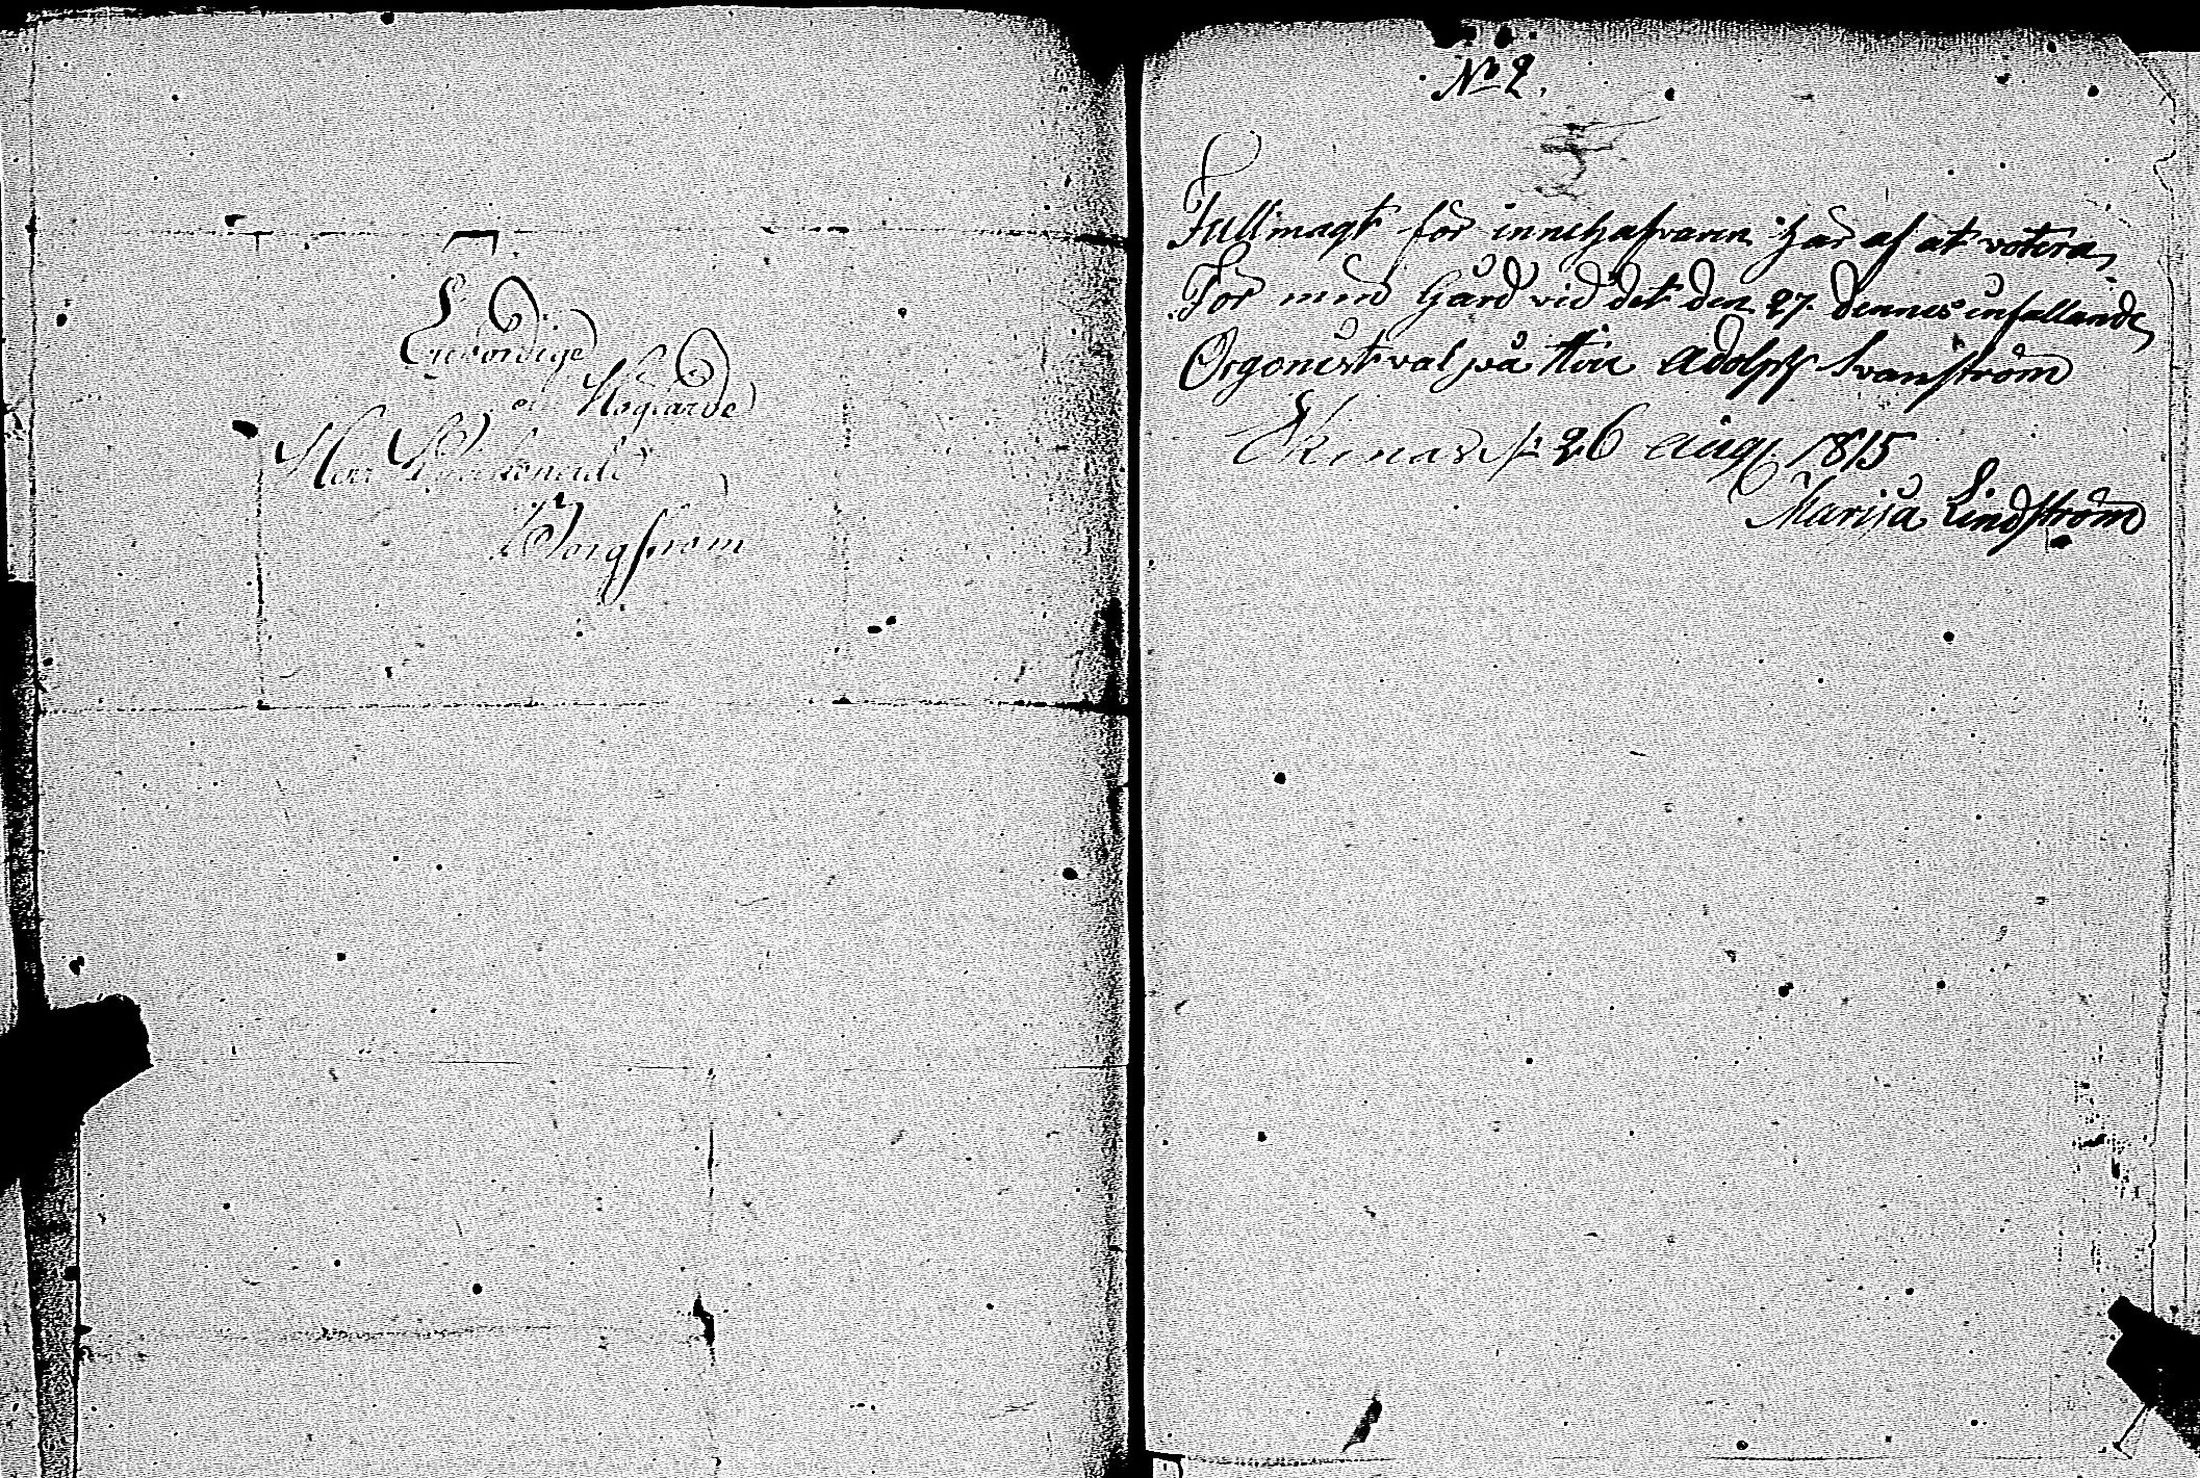 Ehrvördige
och Höglärde
Herr Kyrkoherde
Borgström
No 2.
Fullmagt för innehafvaren här af at votera
För min Gård vid det den 27 dennes infallande
Orgonist val på Herr Adolph Svanström
Ekenäs d. 26 Aug. 1815
Marija Lindström